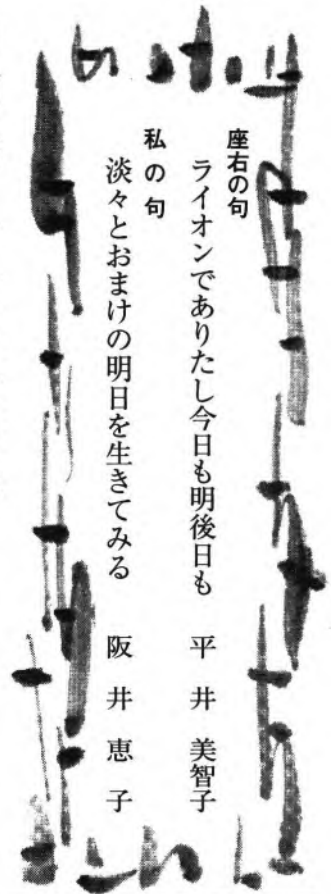 座右の句
ライオンでありたし今日も明後日も　平井美智子
私の句
淡々とおまけの明日を生きてみる　阪井恵子